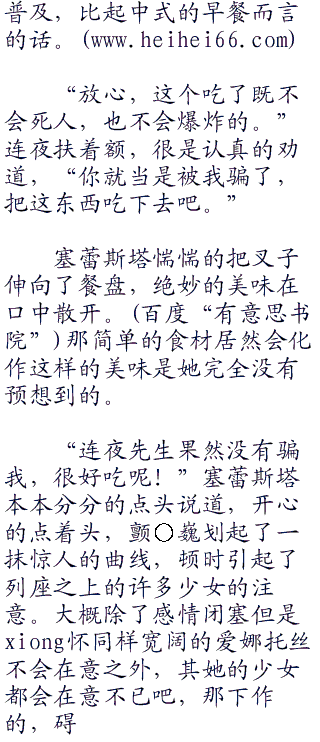 普及，比起中式的早餐而言
的话。(www.heihei66.com)
“放心，这个吃了既不
会死人，也不会爆炸的。”
连夜扶着额，很是认真的劝
道，“你就当是被我骗了，
把这东西吃下去吧。”
塞蕾斯塔惴惴的把叉子
伸向了餐盘，绝妙的美味在
口中散开。(百度“有意思书
院”)那简单的食材居然会化
作这样的美味是她完全没有
预想到的。
“连夜先生果然没有骗
我，很好吃呢！”塞蕾斯塔
本本分分的点头说道，开心
的点着头，颤○巍划起了一
抹惊人的曲线，顿时引起了
列座之上的许多少女的注
意。大概除了感情闭塞但是
xiong怀同样宽阔的爱娜托丝
不会在意之外，其她的少女
都会在意不已吧，那下作
的，碍